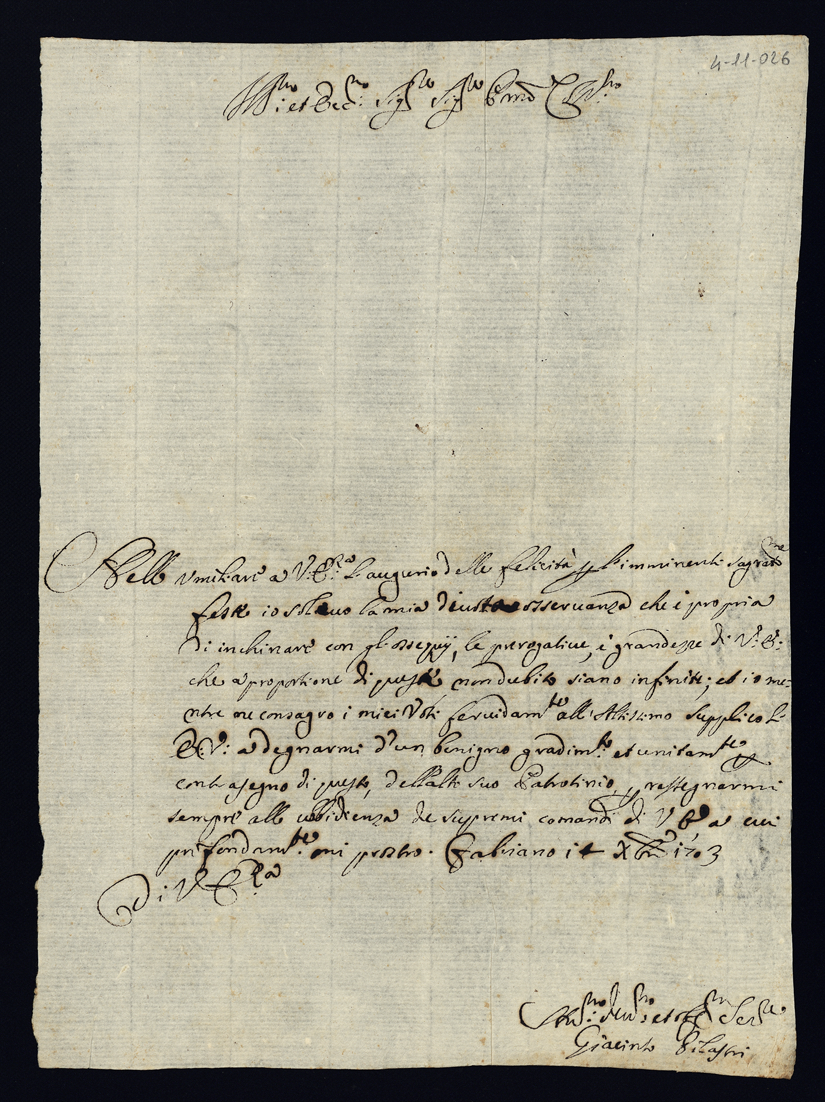 4-11-026
Ill.mo et Ecc.mo Sig.re Sig.re
Nell umiliare a V. E.za l'augurio delle felicità p l'imminenti sagrat.me
feste io solleuo la mia diuota osseruanza che è propria
di inchinare con gl'ossequij, le prerogatiue, e grandezze di V. E.
che a proportione di queste non dubito siano infinite; et io me=
ntre ne consagro i miei Voti feruidam.te all'Altissimo supplico l'
E. V. a degnarmi d'un benigno gradim.to et unitam.te p
contrasegno di questo, dell'alto suo Patrotinio p rassegnarmi
sempre alle ubidienza de supremi comandi di V E a cui
profondam.te mi prostro. Fabriano 14 Xbre 1703
Di V. E.za
Hu.mo Deu.mo et Ser.re
Giacinto Pilastri